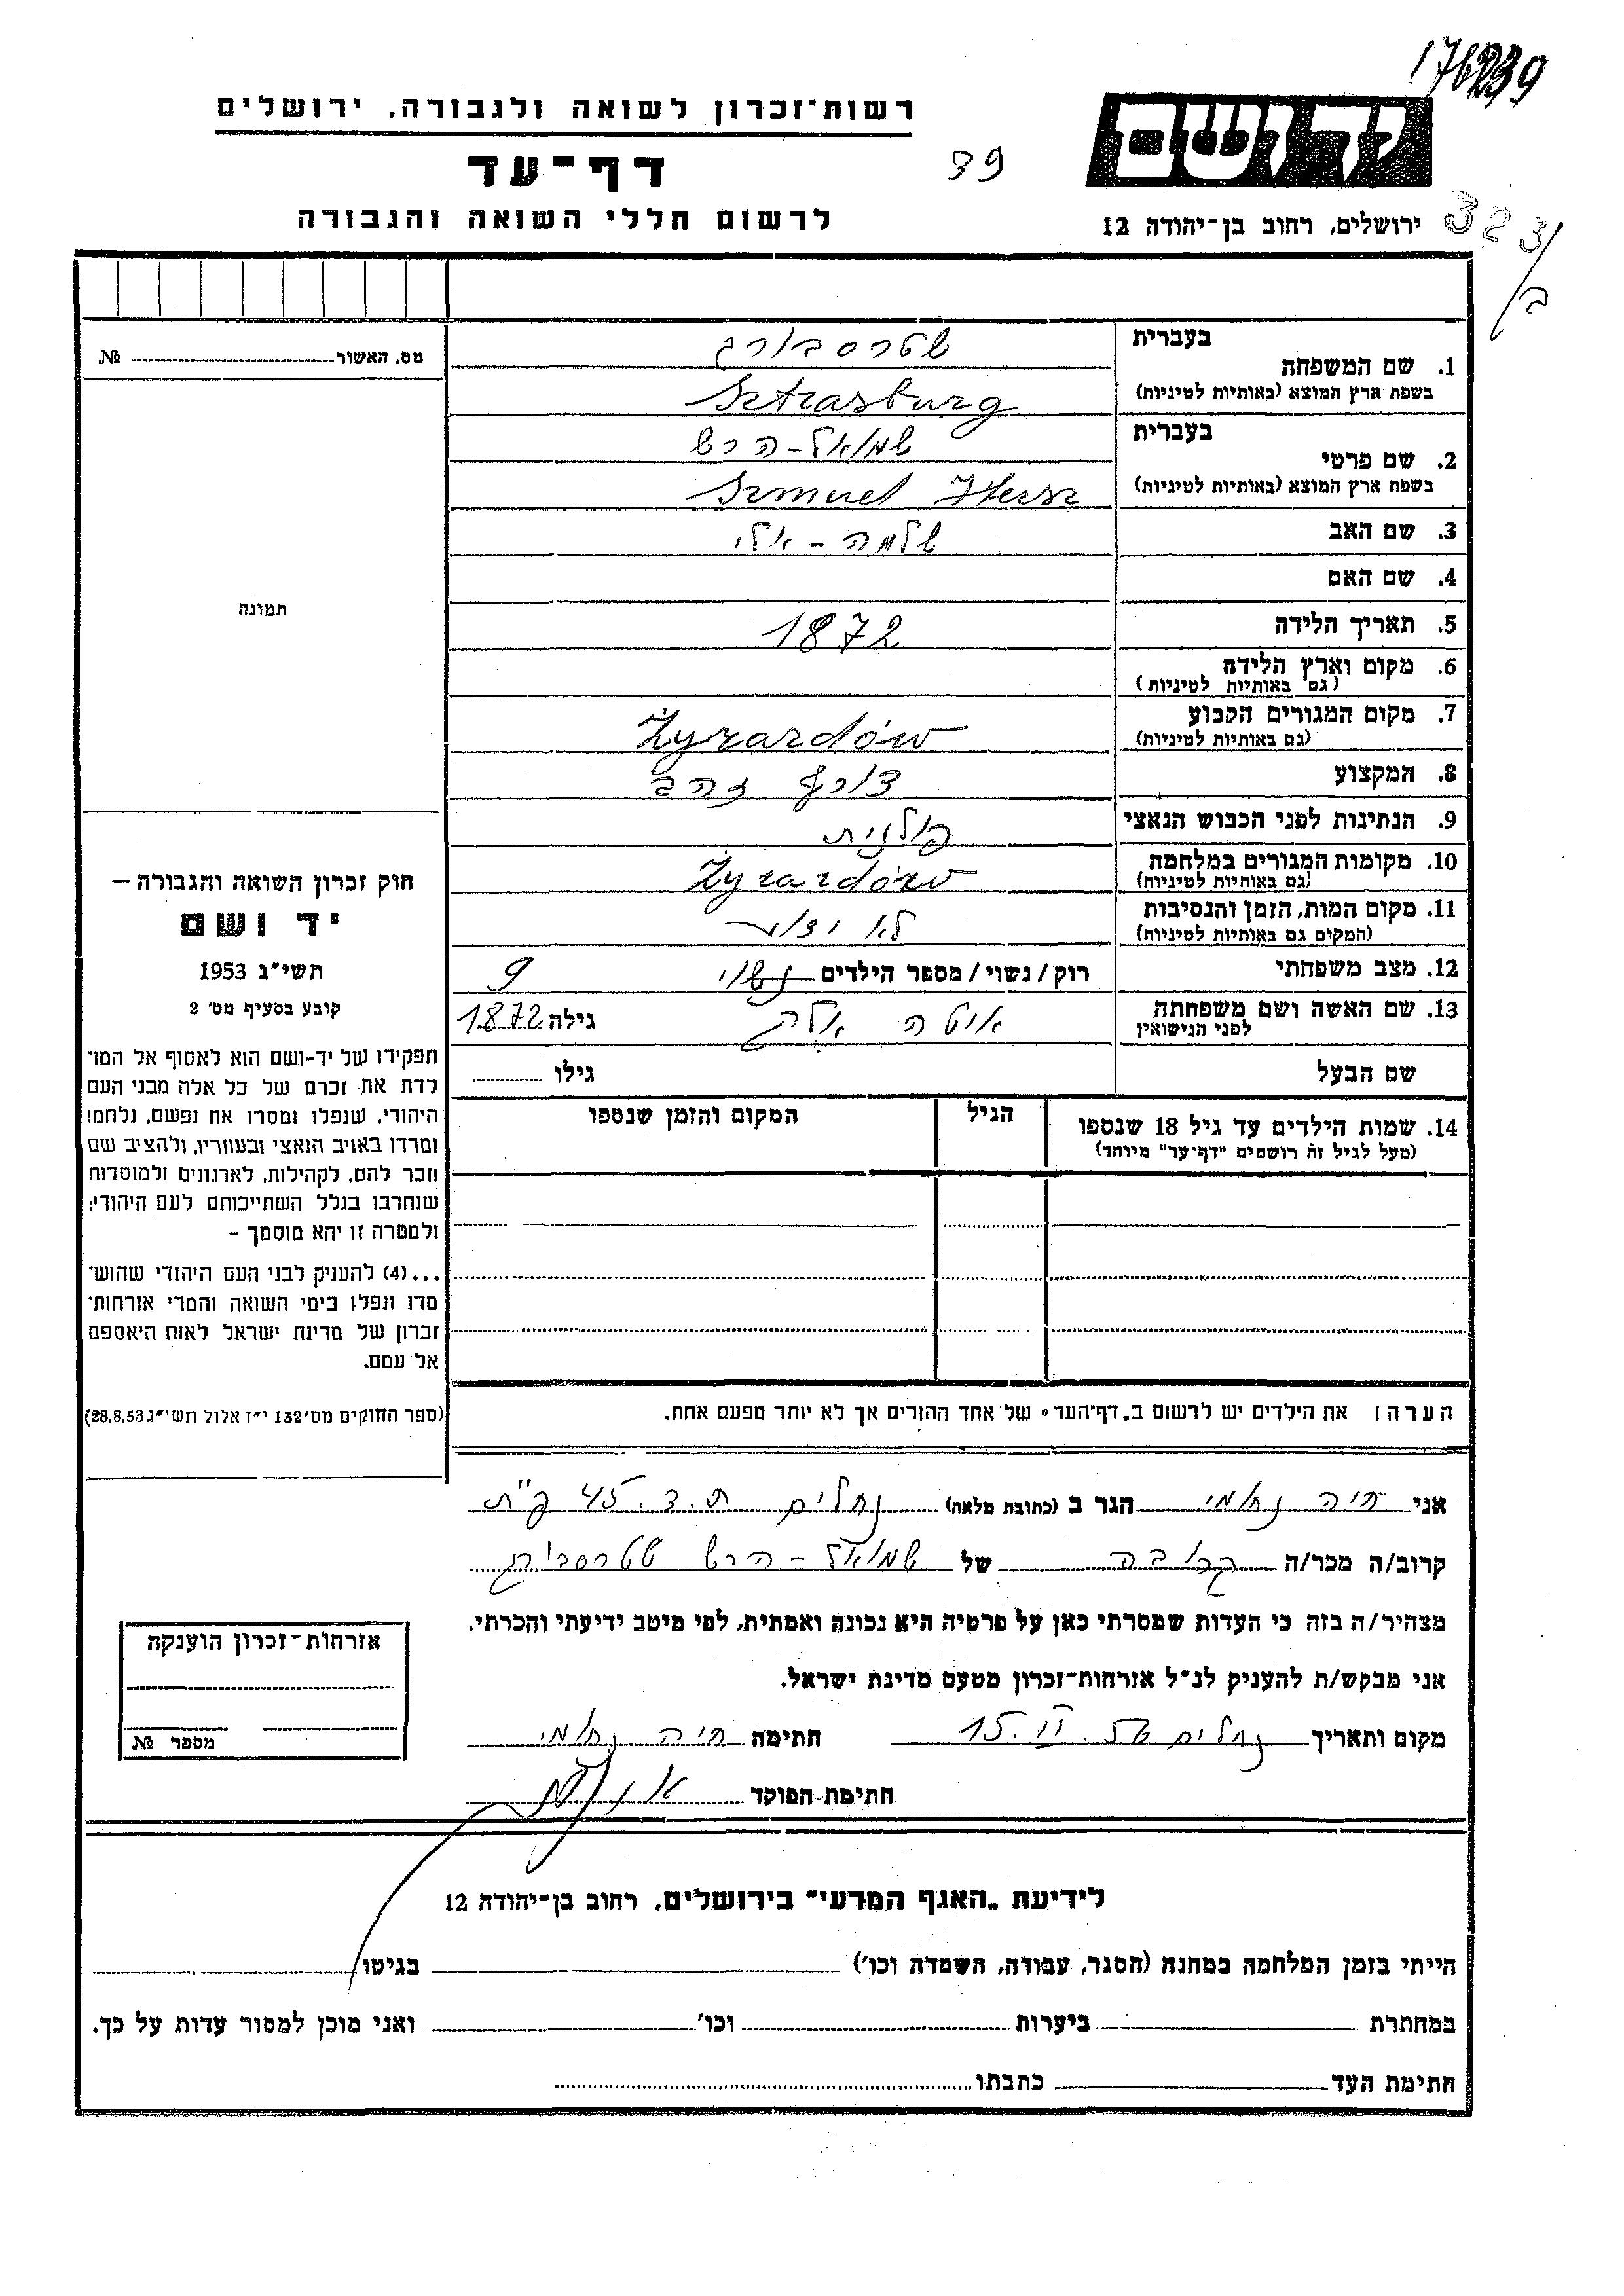 176239
רשות־זכרון לשואה ולגבורה, ירושלים
יד ושם
39
דף־עד
לרשום חללי השואה והגבורה
ירושלים, רחוב בן־יהודה 12
323/ב
בעברית
שטרסבורג
1. שם המשפחה
בשפת ארץ המוצא (באותיות לטיניות)
Sztrasburg
בעברית
שמואל - הרש
2. שם פרטי
בשפת ארץ המוצא (באותיות לטיניות)
Szmuel Hersz
3. שם האב שלמה - אלי
4. שם האם
5. תאריך הלידה 1872
6. מקום וארץ הלידה
(גם באותיות לטיניות)
7. מקום המגורים הקבוע Żyrardów
(גם באותיות לטיניות)
8. המקצוע צורף זהב
9. הנתינות לפני הכבוש הנאצי פולנית
10. מקומות המגורים במלחמה Żyrardów
(גם באותיות לטיניות)
11. מקום המות, הזמן והנסיבות לא ידוע
(המקום גם באותיות לטיניות)
12. מצב משפחתי רוק/נשוי/מספר הילדים נשוי 9
13. שם האשה ושם משפחתה איטה גילה 1872
לפני הנישואין
שם הבעל גילו
14. שמות הילדים עד גיל 18 שנספו הגיל המקום והזמן שנספו
(מעל לגיל זה רושמים "דף־עד" מיוחד)
הערה: את הילדים יש לרשום ב„דף־העד" של אחד ההורים אך לא יותר מפעם אחת.
מס. האשור №
תמונה
חוק זכרון השואה והגבורה —
יד ושם
תשי"ג 1953
קובע בסעיף מס' 2
תפקידו של יד-ושם הוא לאסוף אל המו־
לדת את זכרם של כל אלה מבני העם
היהודי, שנפלו ומסרו את נפשם, נלחמו
ומרדו באויב הנאצי ובעוזריו, ולהציב שם
וזכר להם, לקהילות, לארגונים ולמוסדות
שנחרבו בגלל השתייכותם לעם היהודי;
ולמטרה זו יהא מוסמך -
...(4) להעניק לבני העם היהודי שהוש־
מדו ונפלו בימי השואה והמרי אזרחות־
זכרון של מדינת ישראל לאות היאספם
אל עמם.
(ספר החוקים מס' 132 י"ז אלול תשי"ג 28.8.53)
אני חיה נחומי הגר ב (כתובת מלאה) נחלים ת.ד. 45 פ"ת
קרוב/ה מכר/ה קרובה של שמואל - הרש שטרסבורג
מצהיר/ה בזה כי העדות שמסרתי כאן על פרטיה היא נכונה ואמתית, לפי מיטב ידיעתי והכרתי.
אני מבקש/ת להעניק לנ"ל אזרחות־זכרון מטעם מדינת ישראל.
מקום ותאריך נחלים 15.II.56 חתימה חיה נחומי
חתימת הפוקד
אזרחות־זכרון הוענקה
מספר №
לידיעת „האגף המדעי" בירושלים, רחוב בן־יהודה 12
הייתי בזמן המלחמה במחנה (הסגר, עבודה, השמדה וכו') בגיטו
במחתרת ביערות וכו' ואני מוכן למסור עדות על כך.
חתימת העד כתבתו